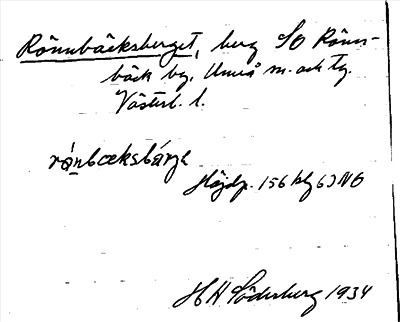 Rönnbäcksberget, berg SO Rönn-
bäck by, Umeå m. och tg.
Västerb. l.
Höjdp. 156 blg 63 NO
H H Söderberg 1934